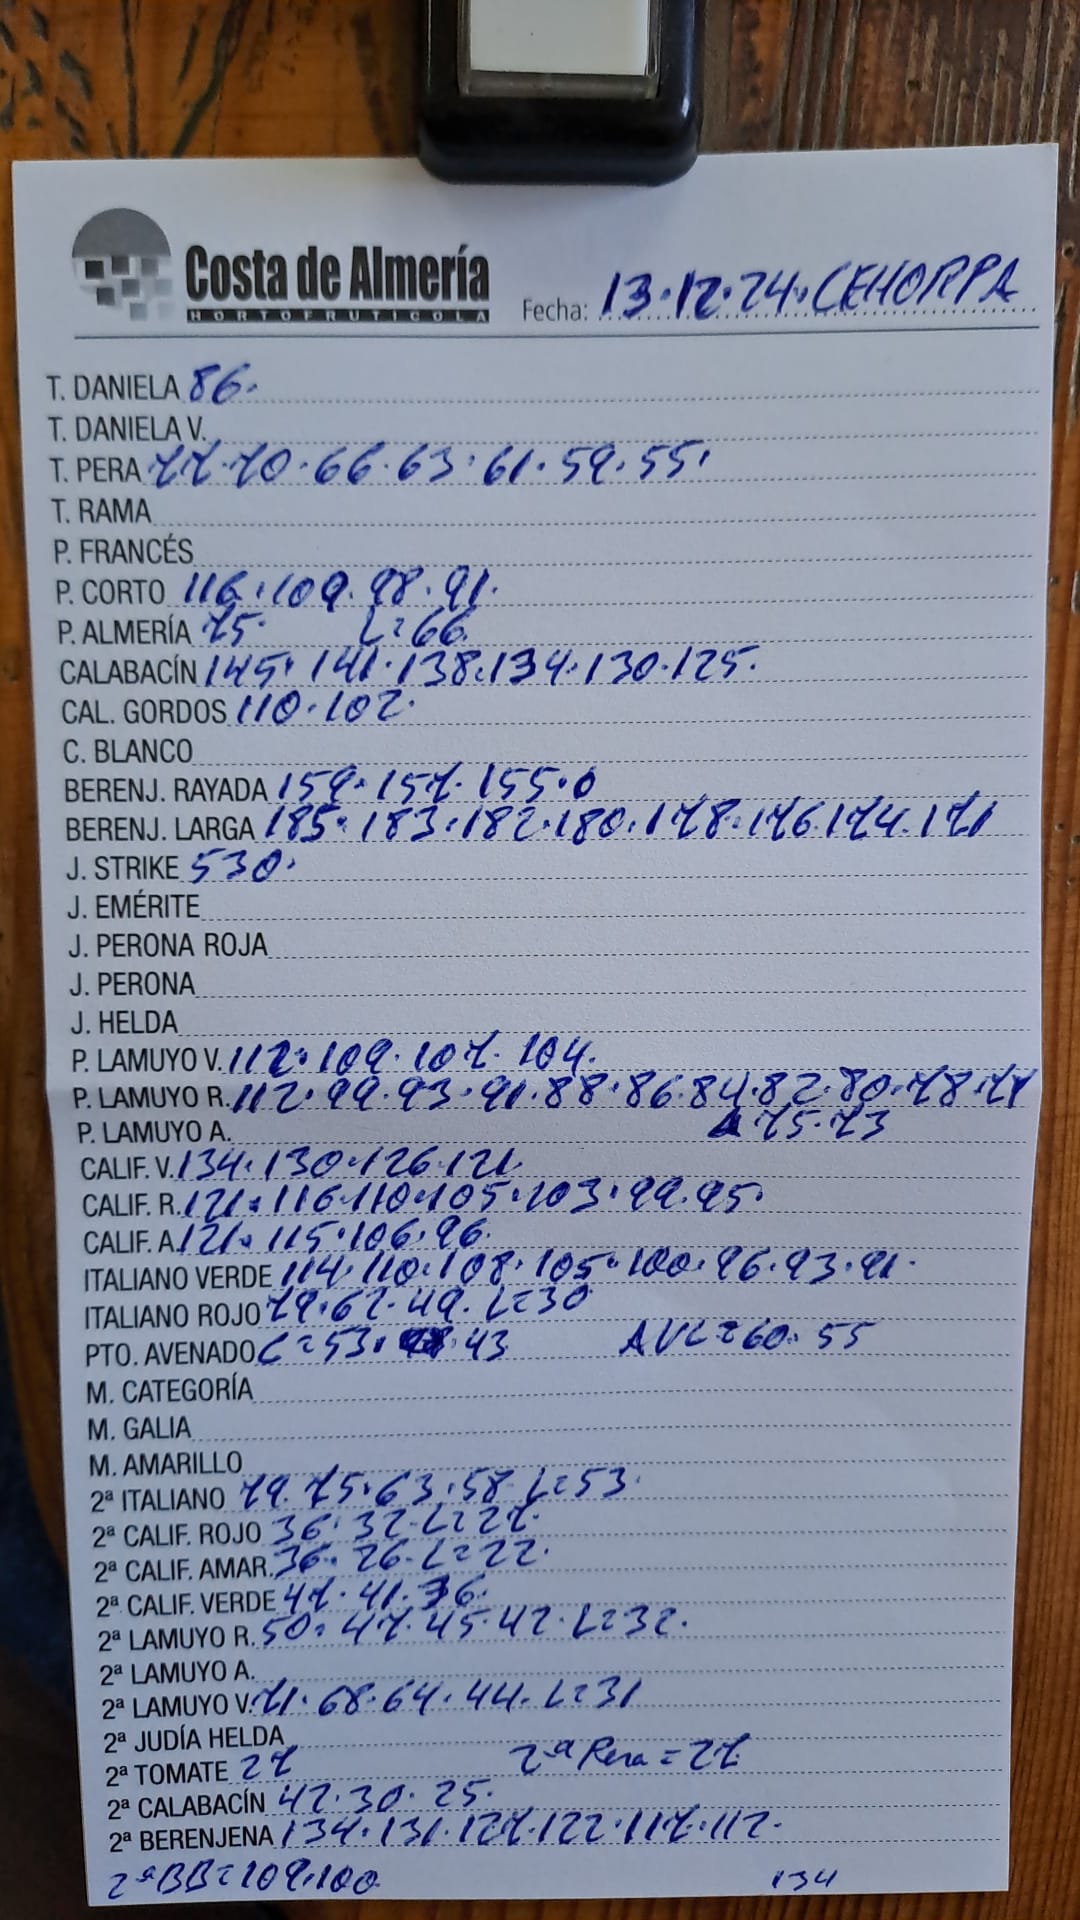 Costa de Almería
HORTOFRUTICOLA
Fecha: 13.12.24. CEHORPA
T. DANIELA 86.
T. DANIELA V.
T. PERA 77.70.66.63.61.59.55.
T. RAMA
P. FRANCÉS
P. CORTO 116.109.98.91.
P. ALMERÍA 75. L=66.
CALABACÍN 145.141.138.134.130.125.
CAL. GORDOS 110.102.
C. BLANCO
BERENJ. RAYADA 159.157.155.0
BERENJ. LARGA 185.183.182.180.178.176.174.171
J. STRIKE 530.
J. EMÉRITE
J. PERONA ROJA
J. PERONA
J. HELDA
P. LAMUYO V. 112.109.107.104.
P. LAMUYO R. 112.99.93.91.88.86.84.82.80.78.77
P. LAMUYO A. 75.73
CALIF. V. 134.130.126.121.
CALIF. R. 121.116.110.105.103.99.95.
CALIF. A. 121.115.106.96.
ITALIANO VERDE 114.110.108.105.100.96.93.91.
ITALIANO ROJO 79.67.49. L=30
PTO. AVENADO C=53. 43 AVL=60.55
M. CATEGORÍA
M. GALIA
M. AMARILLO
2ª ITALIANO 79.75.63.58. L=53.
2ª CALIF. ROJO 36.32. L=27.
2ª CALIF. AMAR. 36.26. L=22.
2ª CALIF. VERDE 47.41.36.
2ª LAMUYO R. 50.47.45.42. L=32.
2ª LAMUYO A.
2ª LAMUYO V. 71.68.64.44. L=31
2ª JUDÍA HELDA
2ª TOMATE 27 2ª Pera=27.
2ª CALABACÍN 42.30.25.
2ª BERENJENA 134.131.127.122.117.112.
2ªBB=109.100 134